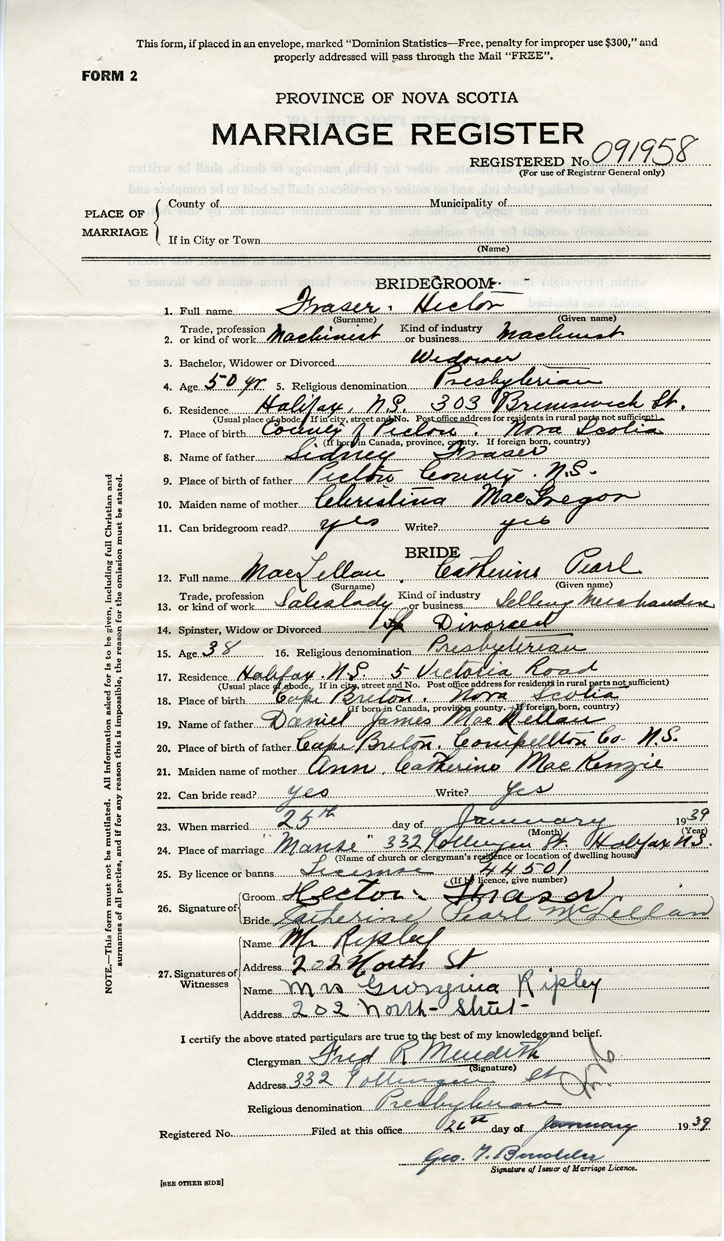 This form, if placed in an envelope, marked "Dominion Statistics—Free, penalty for improper use $300," and
properly addressed will pass through the Mail "FREE".
FORM 2
PROVINCE OF NOVA SCOTIA
MARRIAGE REGISTER
REGISTERED No. 091958
(For use of Registrar General only)
PLACE OF MARRIAGE
County of Municipality of
If in City or Town
(Name)
BRIDEGROOM
1. Full name Fraser, Hector
(Surname) (Given name)
2. Trade, profession or kind of work Machinist Kind of industry or business Machinist
3. Bachelor, Widower or Divorced Widower
4. Age 50 yr 5. Religious denomination Presbyterian
6. Residence Halifax, N.S. 303 Brunswick St.
(Usual place of abode. If in city, street and No. Post office address for residents in rural parts not sufficient)
7. Place of birth County of Pictou. Nova Scotia
(If born in Canada, province, county. If foreign born, country)
8. Name of father Sidney Fraser
9. Place of birth of father Pictou County. N.S.
10. Maiden name of mother Christina MacGregor
11. Can bridegroom read? yes Write? yes
BRIDE
12. Full name MacLellan, Catherine Pearl
(Surname) (Given name)
13. Trade, profession or kind of work Saleslady Kind of industry or business Selling Merchandise
14. Spinster, Widow or Divorced Divorced
15. Age 38 16. Religious denomination Presbyterian
17. Residence Halifax. N.S. 5 Victoria Road
(Usual place of abode, If in city, street and No. Post office address for residents in rural parts not sufficient)
18. Place of birth Cape Breton. Nova Scotia
(If born in Canada, province county. If foreign born, country)
19. Name of father Daniel James MacLellan
20. Place of birth of father Cape Breton. Co. N.S.
21. Maiden name of mother Ann. Catherine MacKenzie
22. Can bride read? yes Write? yes
23. When married 25th day of January 1939
(Month) (Year)
24. Place of marriage "Manse" 332 Gottingen St. Halifax N.S.
(Name of church or clergyman's residence or location of dwelling house)
25. By licence or banns License 44501
(If by licence, give number)
26. Signature of
Groom Hector Fraser
Bride Catherine Pearl McLellan
27. Signatures of Witnesses
Name Mr Ripley
Address 202 North St
Name Mrs Georgina Ripley
Address 202 North Street
I certify the above stated particulars are true to the best of my knowledge and belief.
Clergyman Fred R Meredith
(Signature)
Address 332 Gottingen St
Religious denomination Presbyterian
Registered No. Filed at this office 26th day of January 1939
Geo. T.
Signature of Issuer of Marriage Licence.
[SEE OTHER SIDE]
NOTE.—This form must not be mutilated. All information asked for is to be given, including full Christian and
surnames of all parties, and if for any reason this is impossible, the reason for the omission must be stated.